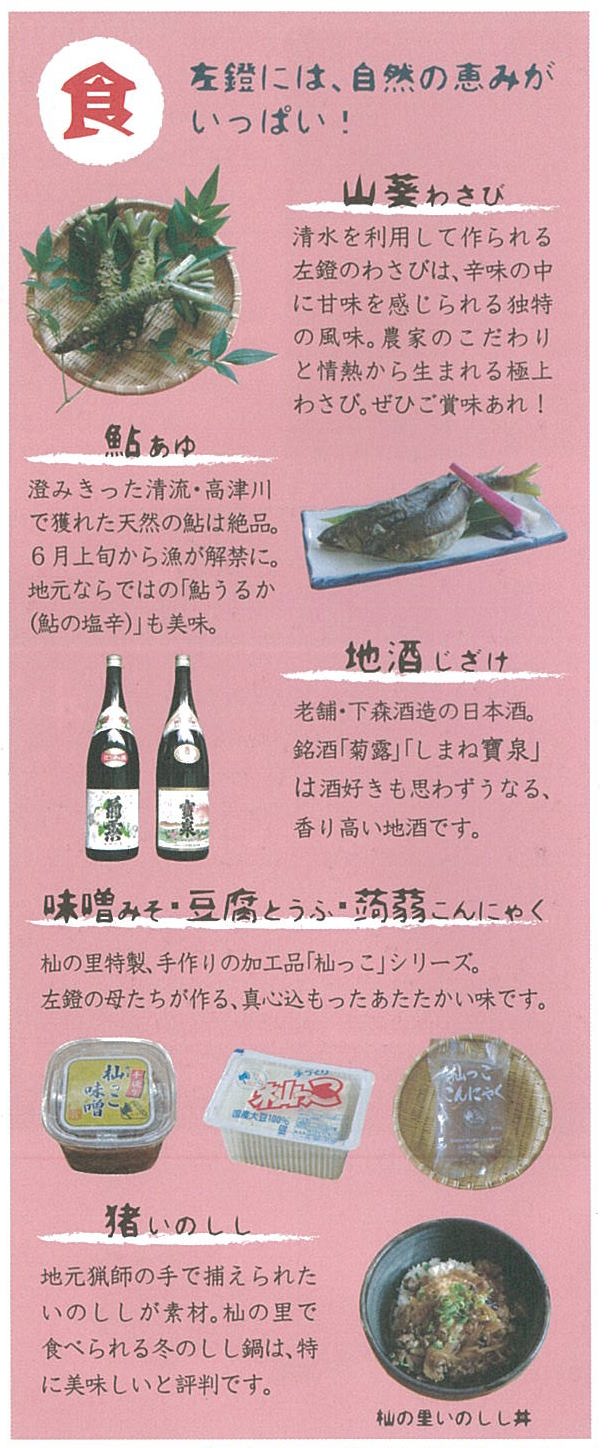 食
左鐙には、自然の恵みが
いっぱい！
山葵わさび
清水を利用して作られる
左鐙のわさびは、辛味の中
に甘味を感じられる独特
の風味。農家のこだわり
と情熱から生まれる極上
わさび。ぜひご賞味あれ！
鮎あゆ
澄みきった清流・高津川
で獲れた天然の鮎は絶品。
６月上旬から漁が解禁に。
地元ならではの「鮎うるか
(鮎の塩辛)」も美味。
地酒じざけ
老舗・下森酒造の日本酒。
銘酒「菊露」「しまね寶泉」
は酒好きも思わずうなる、
香り高い地酒です。
菊露
寶泉
味噌みそ・豆腐とうふ・蒟蒻こんにゃく
杣の里特製、手作りの加工品「杣っこ」シリーズ。
左鐙の母たちが作る、真心込もったあたたかい味です。
杣っこ
味噌
手づくり
杣っこ
国産大豆100%
杣っこ
こんにゃく
猪いのしし
地元猟師の手で捕えられた
いのししが素材。杣の里で
食べられる冬のしし鍋は、特
に美味しいと評判です。
杣の里いのしし丼